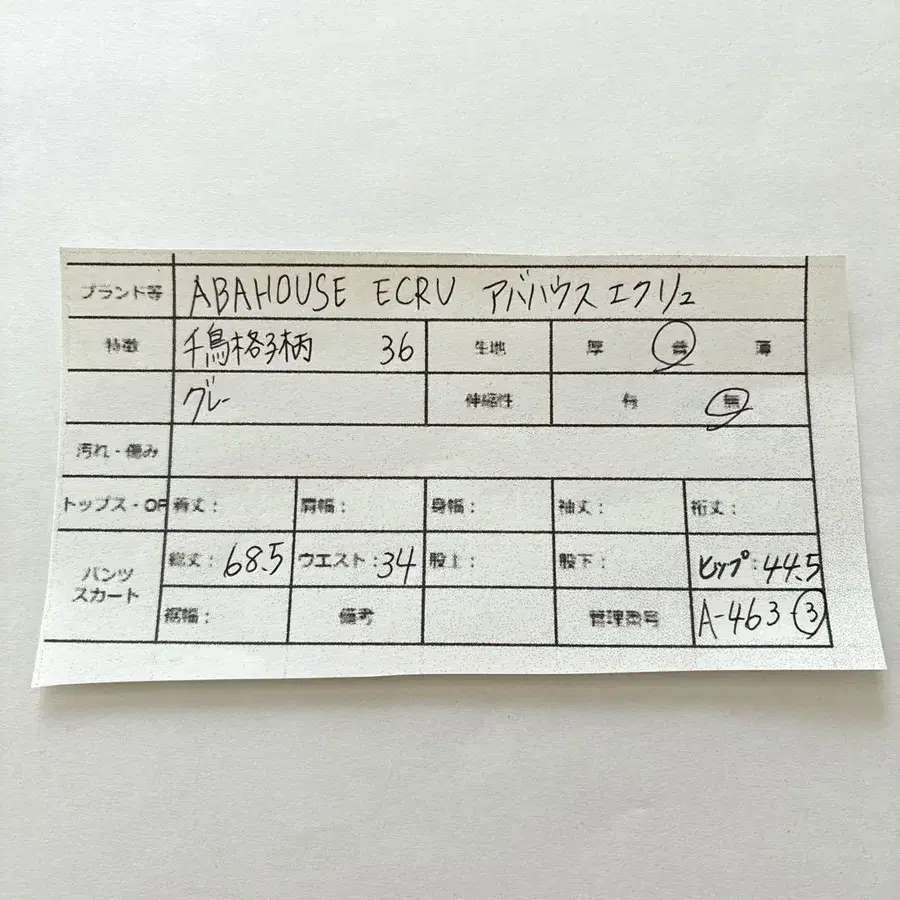 ブランド等 ABAHOUSE ECRU アバハウスエクリュ
特徴 千鳥格子柄 36 生地 厚 普 薄
グレー 伸縮性 有 無
汚れ・傷み
トップス・OP 着丈: 肩幅: 身幅: 袖丈: 裄丈:
パンツ スカート 総丈: 68.5 ウエスト: 34 股上: 股下: ヒップ: 44.5
裾幅: 備考 管理番号 A-463 ③